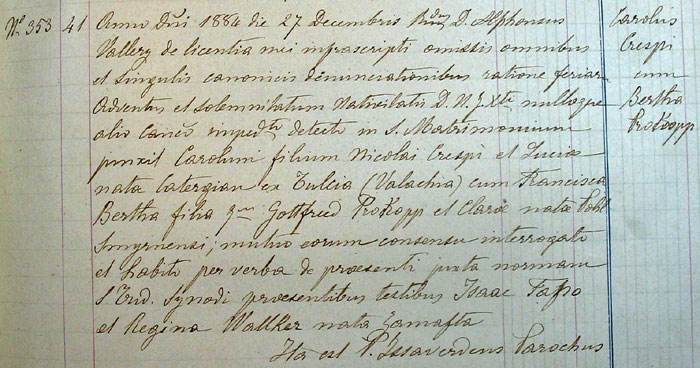 Nº 353 41 Anno Dñi 1884 die 27 Decembris Rdus D. Alphonsus
Vallery de licentia mei infrascripti omissis omnibus
et singulis canonicis denunciationibus ratione feriar.
Adventus et solemnitatum Nativitatis D. N. J. Xti nulloque
alio Canco impedto detecto in S. Matrimonium
junxit Carolum filium Nicolai Crespi et Luciæ
nata Catergian ex Tulcia (Valachia) cum Francisca
Bertha filia qm Gottfried Prokopp et Claræ natæ Pohl
Smyrnensi; mutuo eorum consensu interrogato
et habito per verba de præsenti juxta normam
S. Trid. Synodi præsentibus testibus Isaac
et Regina Wallker nata
Ita est P. Issaverdens Parochus
Carolus
Crespi
cum
Bertha
Prokopp